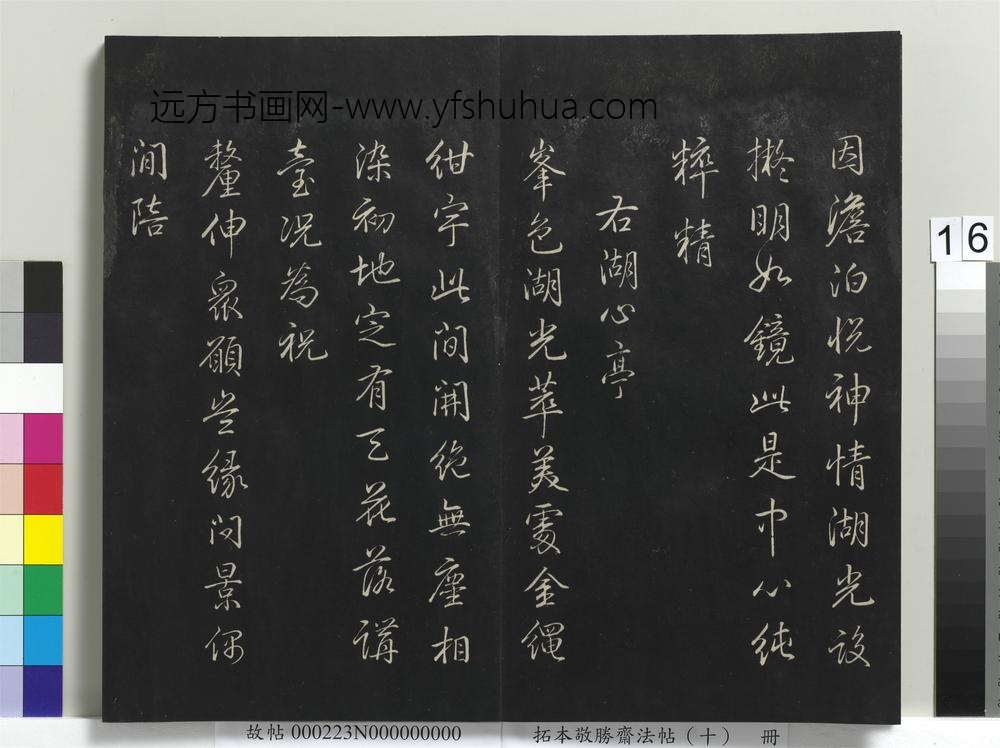 远方书画网-www.yfshuhua.com
因澹泊悦神情湖光设
擬明如鏡此是中心純
粹精
右湖心亭
峯色湖光萃美處金绳
紺宇此间開絶無塵相
染初地定有天花落講
臺况為祝
釐伸衆願豈缘问景偶
间陪
16
故帖 000223N000000000
拓本敬勝齋法帖（十） 冊